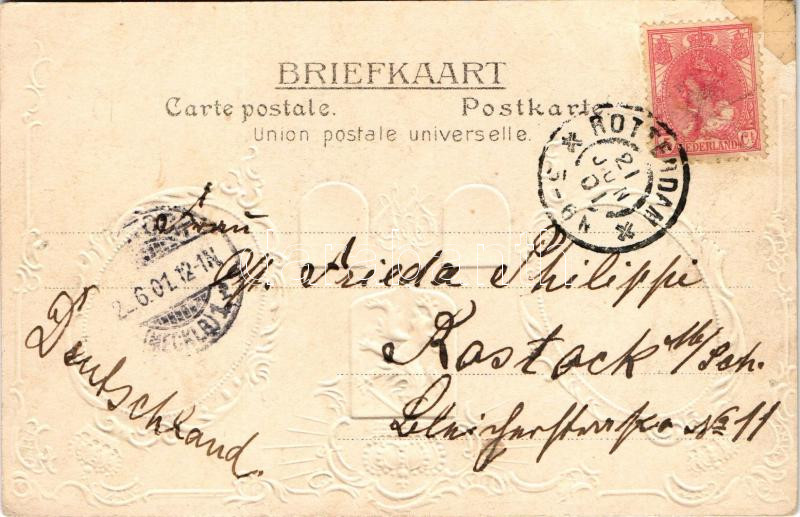 BRIEFKAART
Carte postale. Postkarte
Union postale universelle.
5 Ct
NEDERLAND
ROTTERDAM
21 JUN 01
5-6 N
2.6.01.12-1N
(MECKLB)1
Frau
Frieda Philippi
Rostock M/Sch.
Bleicherstrasse No 11
Deutschland.